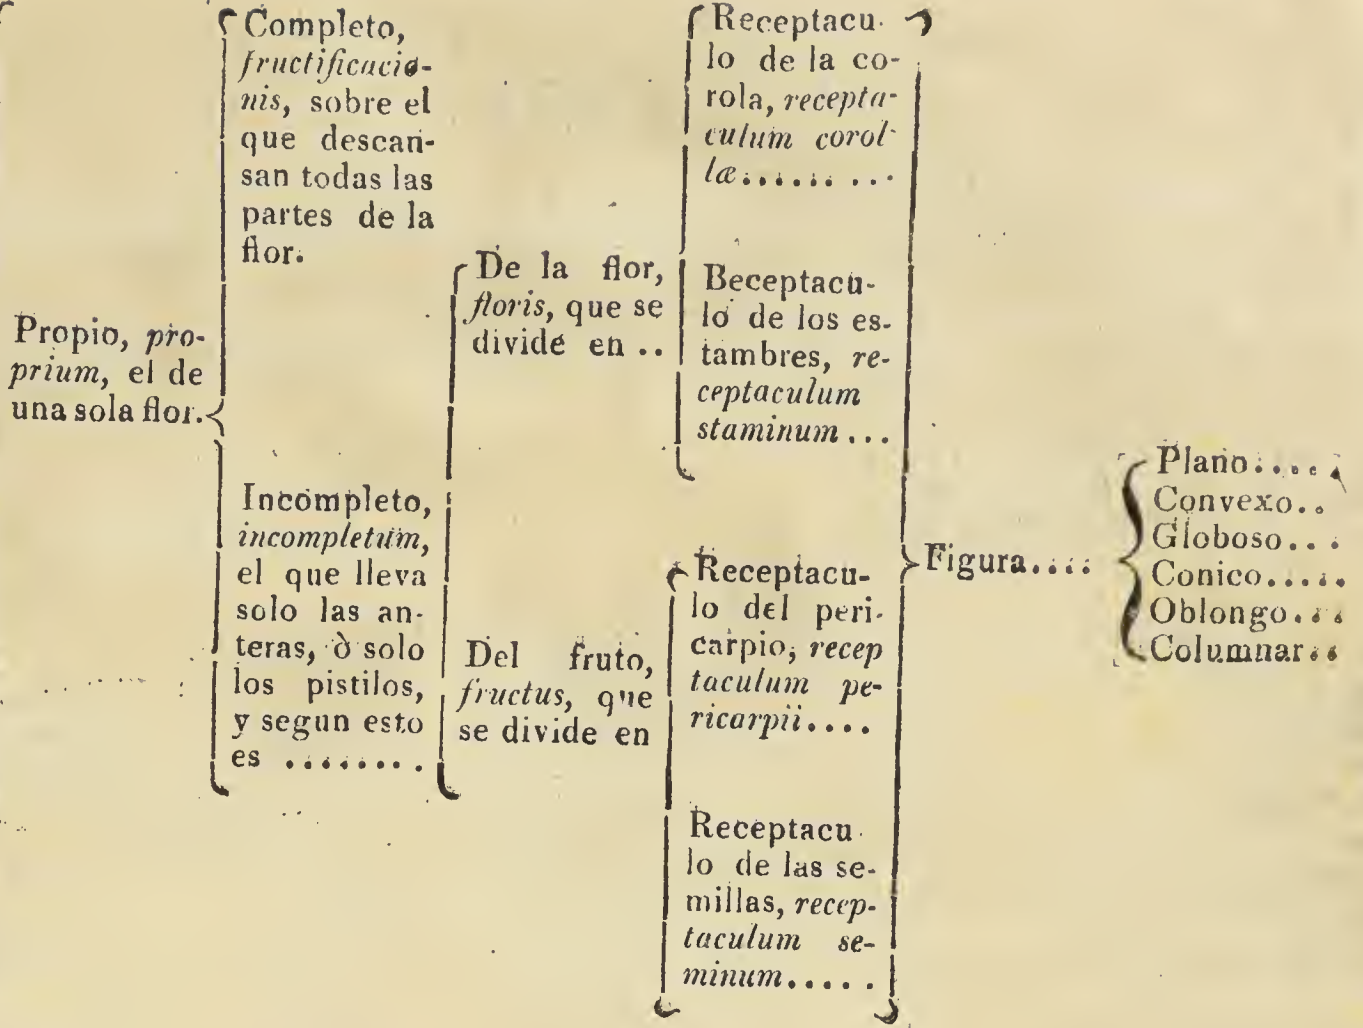 Propio, pro-
prium, el de
una sola flor.
Completo,
fructificacio-
nis, sobre el
que descan-
san todas las
partes de la
flor.
Incompleto,
incompletum,
el que lleva
solo las an-
teras, ò solo
los pistilos,
y segun esto
es ........
De la flor,
floris, que se
divide en ..
Del fruto,
fructus, que
se divide en
Receptacu-
lo de la co-
rola, recepta-
culum corol-
læ.........
Beceptacu-
lo de los es-
tambres, re-
ceptaculum
staminum...
Receptacu-
lo del peri-
carpio, recep
taculum pe-
ricarpii....
Receptacu
lo de las se-
millas, recep-
taculum se-
minum.....
Figura....
Plano....
Convexo..
Globoso...
Conico.....
Oblongo...
Columnar..